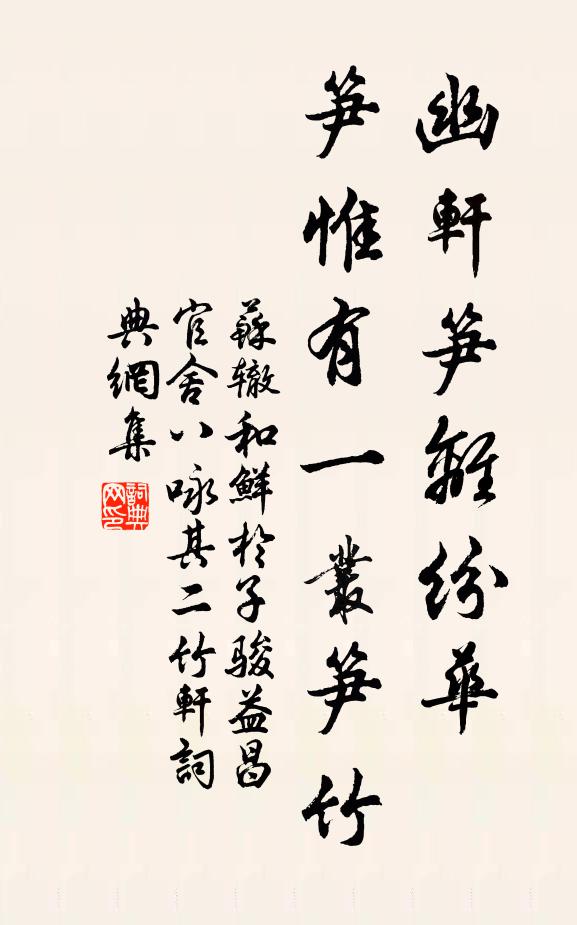 幽軒笋離紛華
笋惟有一叢笋竹
蘇辙和鮮於子駿益昌
官舍八咏其二竹軒詞
典網集
詞典
网印